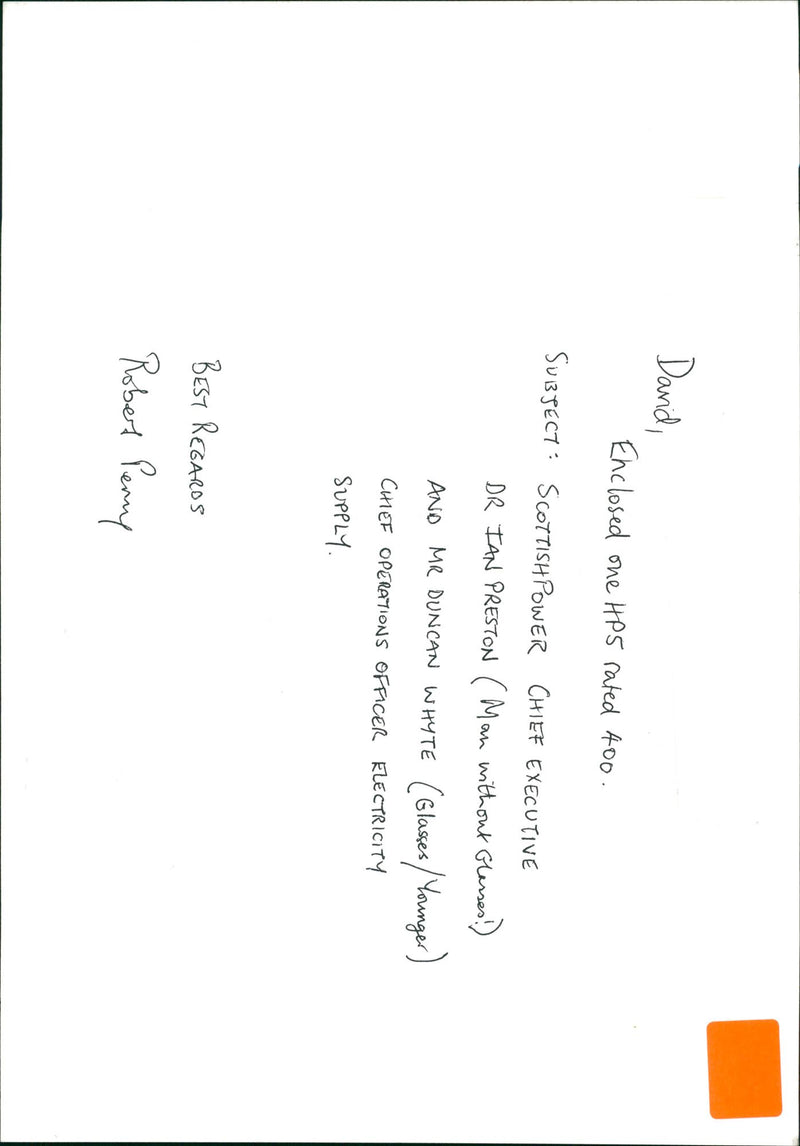 David,
Enclosed one HP5 rated 400.
SUBJECT: SCOTTISHPOWER CHIEF EXECUTIVE
DR IAN PRESTON (Man without Glasses!)
AND MR DUNCAN WHYTE (Glasses/Younger)
CHIEF OPERATIONS OFFICER ELECTRICITY
SUPPLY.
BEST REGARDS
Robert Perry